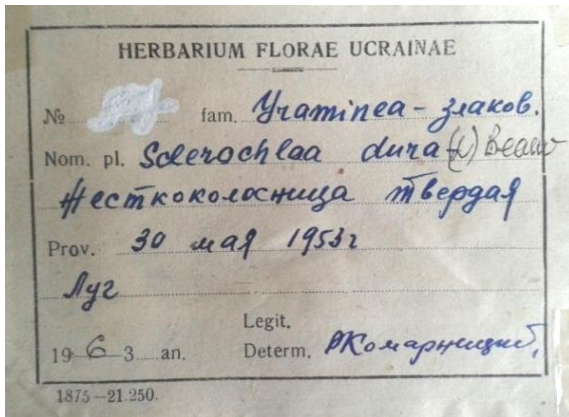 HERBARIUM FLORAE UCRAINAE
№ fam. Graminea - злаков.
Nom. pl. Sclerochlaa dura (L) Beauv
Жесткоколосница твердая
Prov. 30 мая 1953г
Луг
Legit.
1963 an. Determ. РКомарницкий,
1875-21.250.